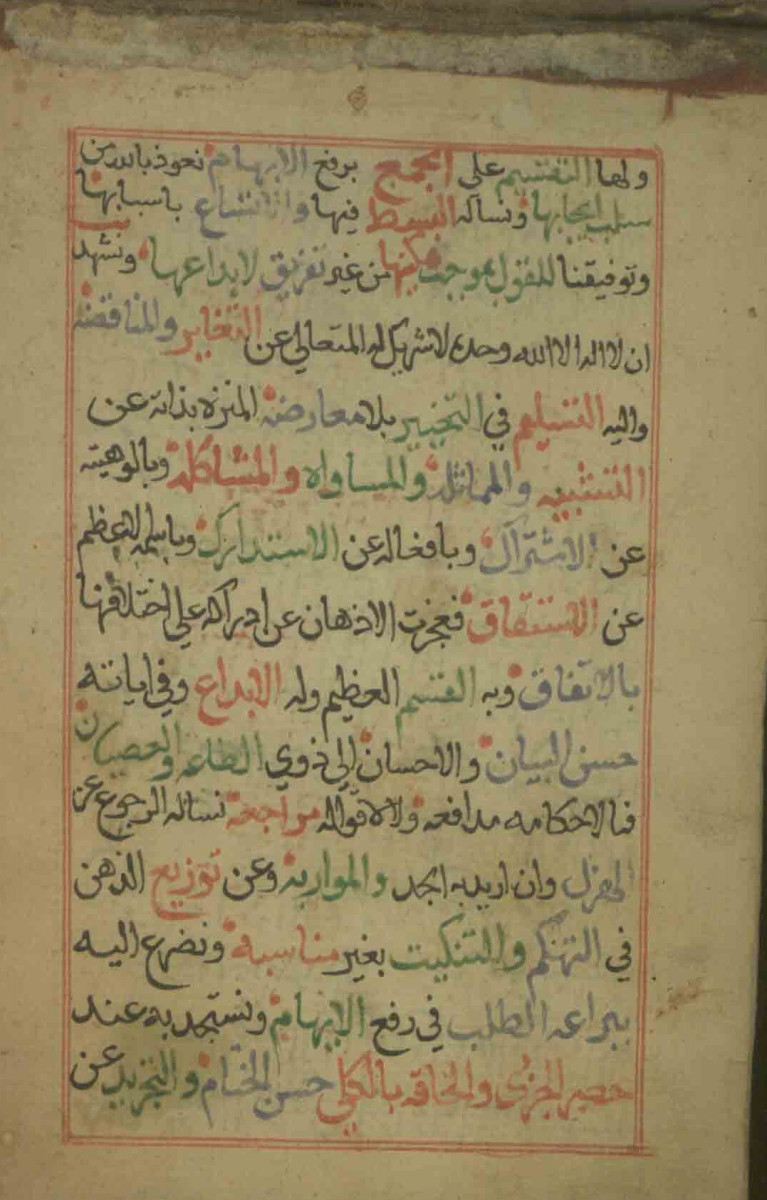 ولها التقسيم على الجمع برفع الابهام نعوذ بالله من
سلب ايجابها ونساله البسط فيها والاتساع باسبابها
وتوفيقنا للقول بموجب من غير تفريق لابداعها ونشهد
ان لا اله الا الله وحده لا شريك له المتعالي عن التغاير والمناقضه
واليه التسليم في التخيير بلا معارضه المنزه بذاته عن
التشبيه والمماثله والمساواه والمشاكله وبالوهيته
عن الاشتراك وبافعاله عن الاستدراك وباسمه الاعظم
عن الاشتقاق فعجزت الاذهان عن ادراكه علي اختلافها
بالاتفاق وبه القسم العظيم وله الابداع وفي اياته
حسن البيان والاحسان الي ذوي الطاعه والعصيان
فما لاحكامه مدافعه ولا لاقواله مراجعه نساله الرجوع عن
الهزل وان اريد به الجد والمواربه وعن توزيع الذهن
في التهكم والتنكيت بغير مناسبه ونضرع اليه
ببراعه الطلب في رفع الابهام ونستمد به عند
حصر الجزئ والحاقه بالكلي حسن الختام والتجريد عن